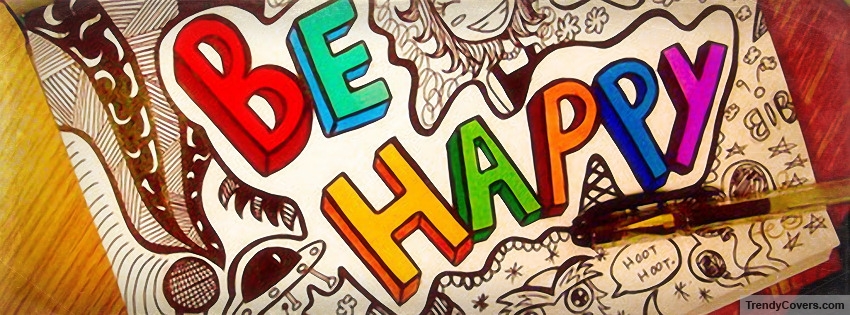 BE
HAPPY
BIB
HOOT
HOOT.
TrendyCovers.com